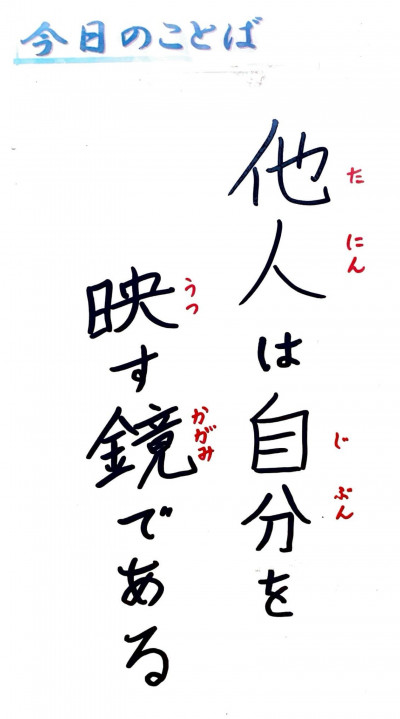 今日のことば
他人は自分を
たにん
じぶん
映す鏡である
うつ
かがみ